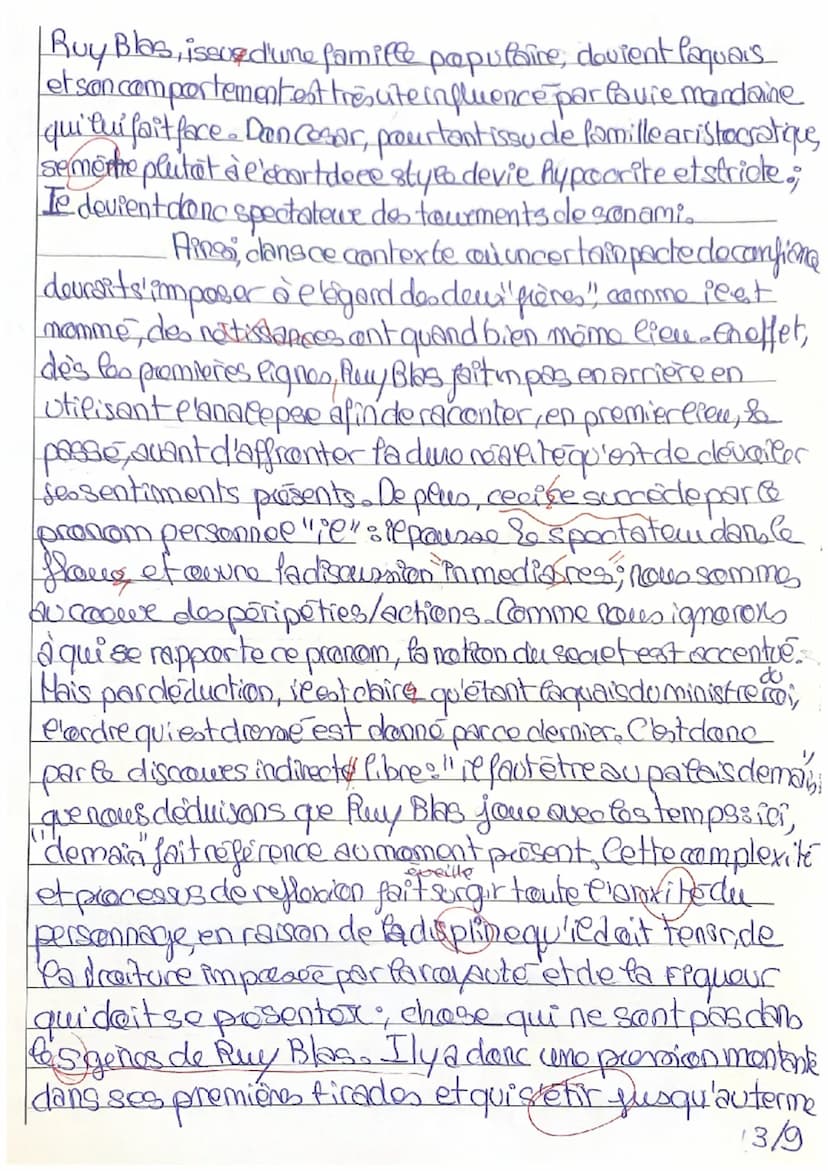 Ruy Blas, issue d'une famille populaire, devient laquais
et son comportement est très vite influencé par la vie mondaine
qui lui fait face. Don César, pourtant issu de famille aristocratique,
se mèthe plutôt à l'écart de ce style de vie hypocrite et stricte ;
Il devient donc spectateur des tourments de son ami.
Ainsi, dans ce contexte où un certain pacte de confiance
devrait s'imposer à l'égard des deux "frères", comme il est
nommé, des
ont quand bien même lieu. En effet,
dès les premières lignes, Ruy Blas fait un pas en arrière en
utilisant l'analepse afin de raconter, en premier lieu, le
passé, avant d'affronter la dure réalité qu'est de dévoiler
ses sentiments présents. De plus, ceci se succède par le
pronom personnel "il" : il pousse le spectateur dans le
floue, et ouvre la discussion "in medias res" ; nous sommes
au coeur des péripéties/actions. Comme nous ignorons
à qui se rapporte ce pronom, la notion du secret est accentué.
Mais par déduction, il est claire qu'étant laquais du ministre du roi,
l'ordre qui est donné par ce dernier. C'est donc
par le discours indirecte libre : "il faut être au palais demain"
que nous déduisons que Ruy Blas joue avec les temps : ici,
"demain" fait référence au moment présent. Cette complexité
et processus de reflexion fait surgir toute l'anxité du
personnage, en raison de la displine qu'il doit tenir, de
la droiture imposée par la royauté et de la rigueur
qui doit se présenter ; chose qui ne sont pas dans
les gènes de Ruy Blas. Il y a donc une pression montante
dans ses premières tirades et qui s'étir jusqu'au terme
3/9